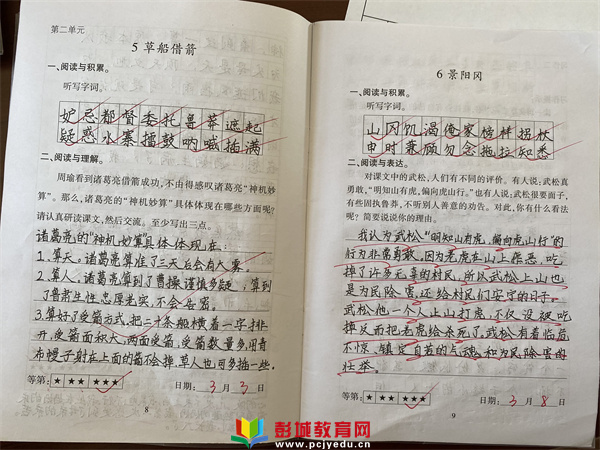 第二单元
5 草船借箭
一、阅读与积累。
听写字词。
妒忌 都督 委托 鲁莽 遮起
疑惑 水寨 擂鼓 呐喊 插满
二、阅读与理解。
周瑜看到诸葛亮借箭成功，不由得感叹诸葛亮“神机
妙算”。那么，诸葛亮的“神机妙算”具体体现在哪些方面呢？
请认真研读课文，然后交流。至少写出三点。
诸葛亮的“神机妙算”具体体现在：
1.算天。诸葛亮算准了三天后会有大雾。
2.算人。诸葛亮算到了曹操谨慎多疑，算到
了鲁肃生性忠厚老实，不会告密。
3.算好了受箭方式，把二十条船横着一字排
开，受箭面积大，两面受箭，受箭数量多，用青
布幔子射在上面的箭不会掉，草人也可多插一些。
等第：★ ★★ ★★★ 日期：3月3日
8
6 景阳冈
一、阅读与积累。
听写字词。
山冈 饥渴 俺家 榜样 拐杖
申时 兼顾 勿念 拖拉 知悉
二、阅读与表达。
对课文中的武松，人们有不同的评价。有人说：武松真
勇敢，“明知山有虎，偏向虎山行。”也有人说：武松很要面子，
有些固执鲁莽，不听别人善意的劝告。对此，你有什么看法
呢？简要说说你的理由。
我认为武松“明知山有虎，偏向虎山行”的
行为非常勇敢，因为老虎在山上作恶，吃
掉了许多无辜的村民，所以武松上山也
是为民除害，还给村民们安宁的日子。
武松他一个人上山打虎，不仅没被吃
掉反而把老虎给杀死了，武松有着临危
不惊、镇定自若的气魄和为民除害的
壮举。
等第：★ ★★ ★★★ 日期：3月8日
9
彭城教育网
www.pcjyedu.cn